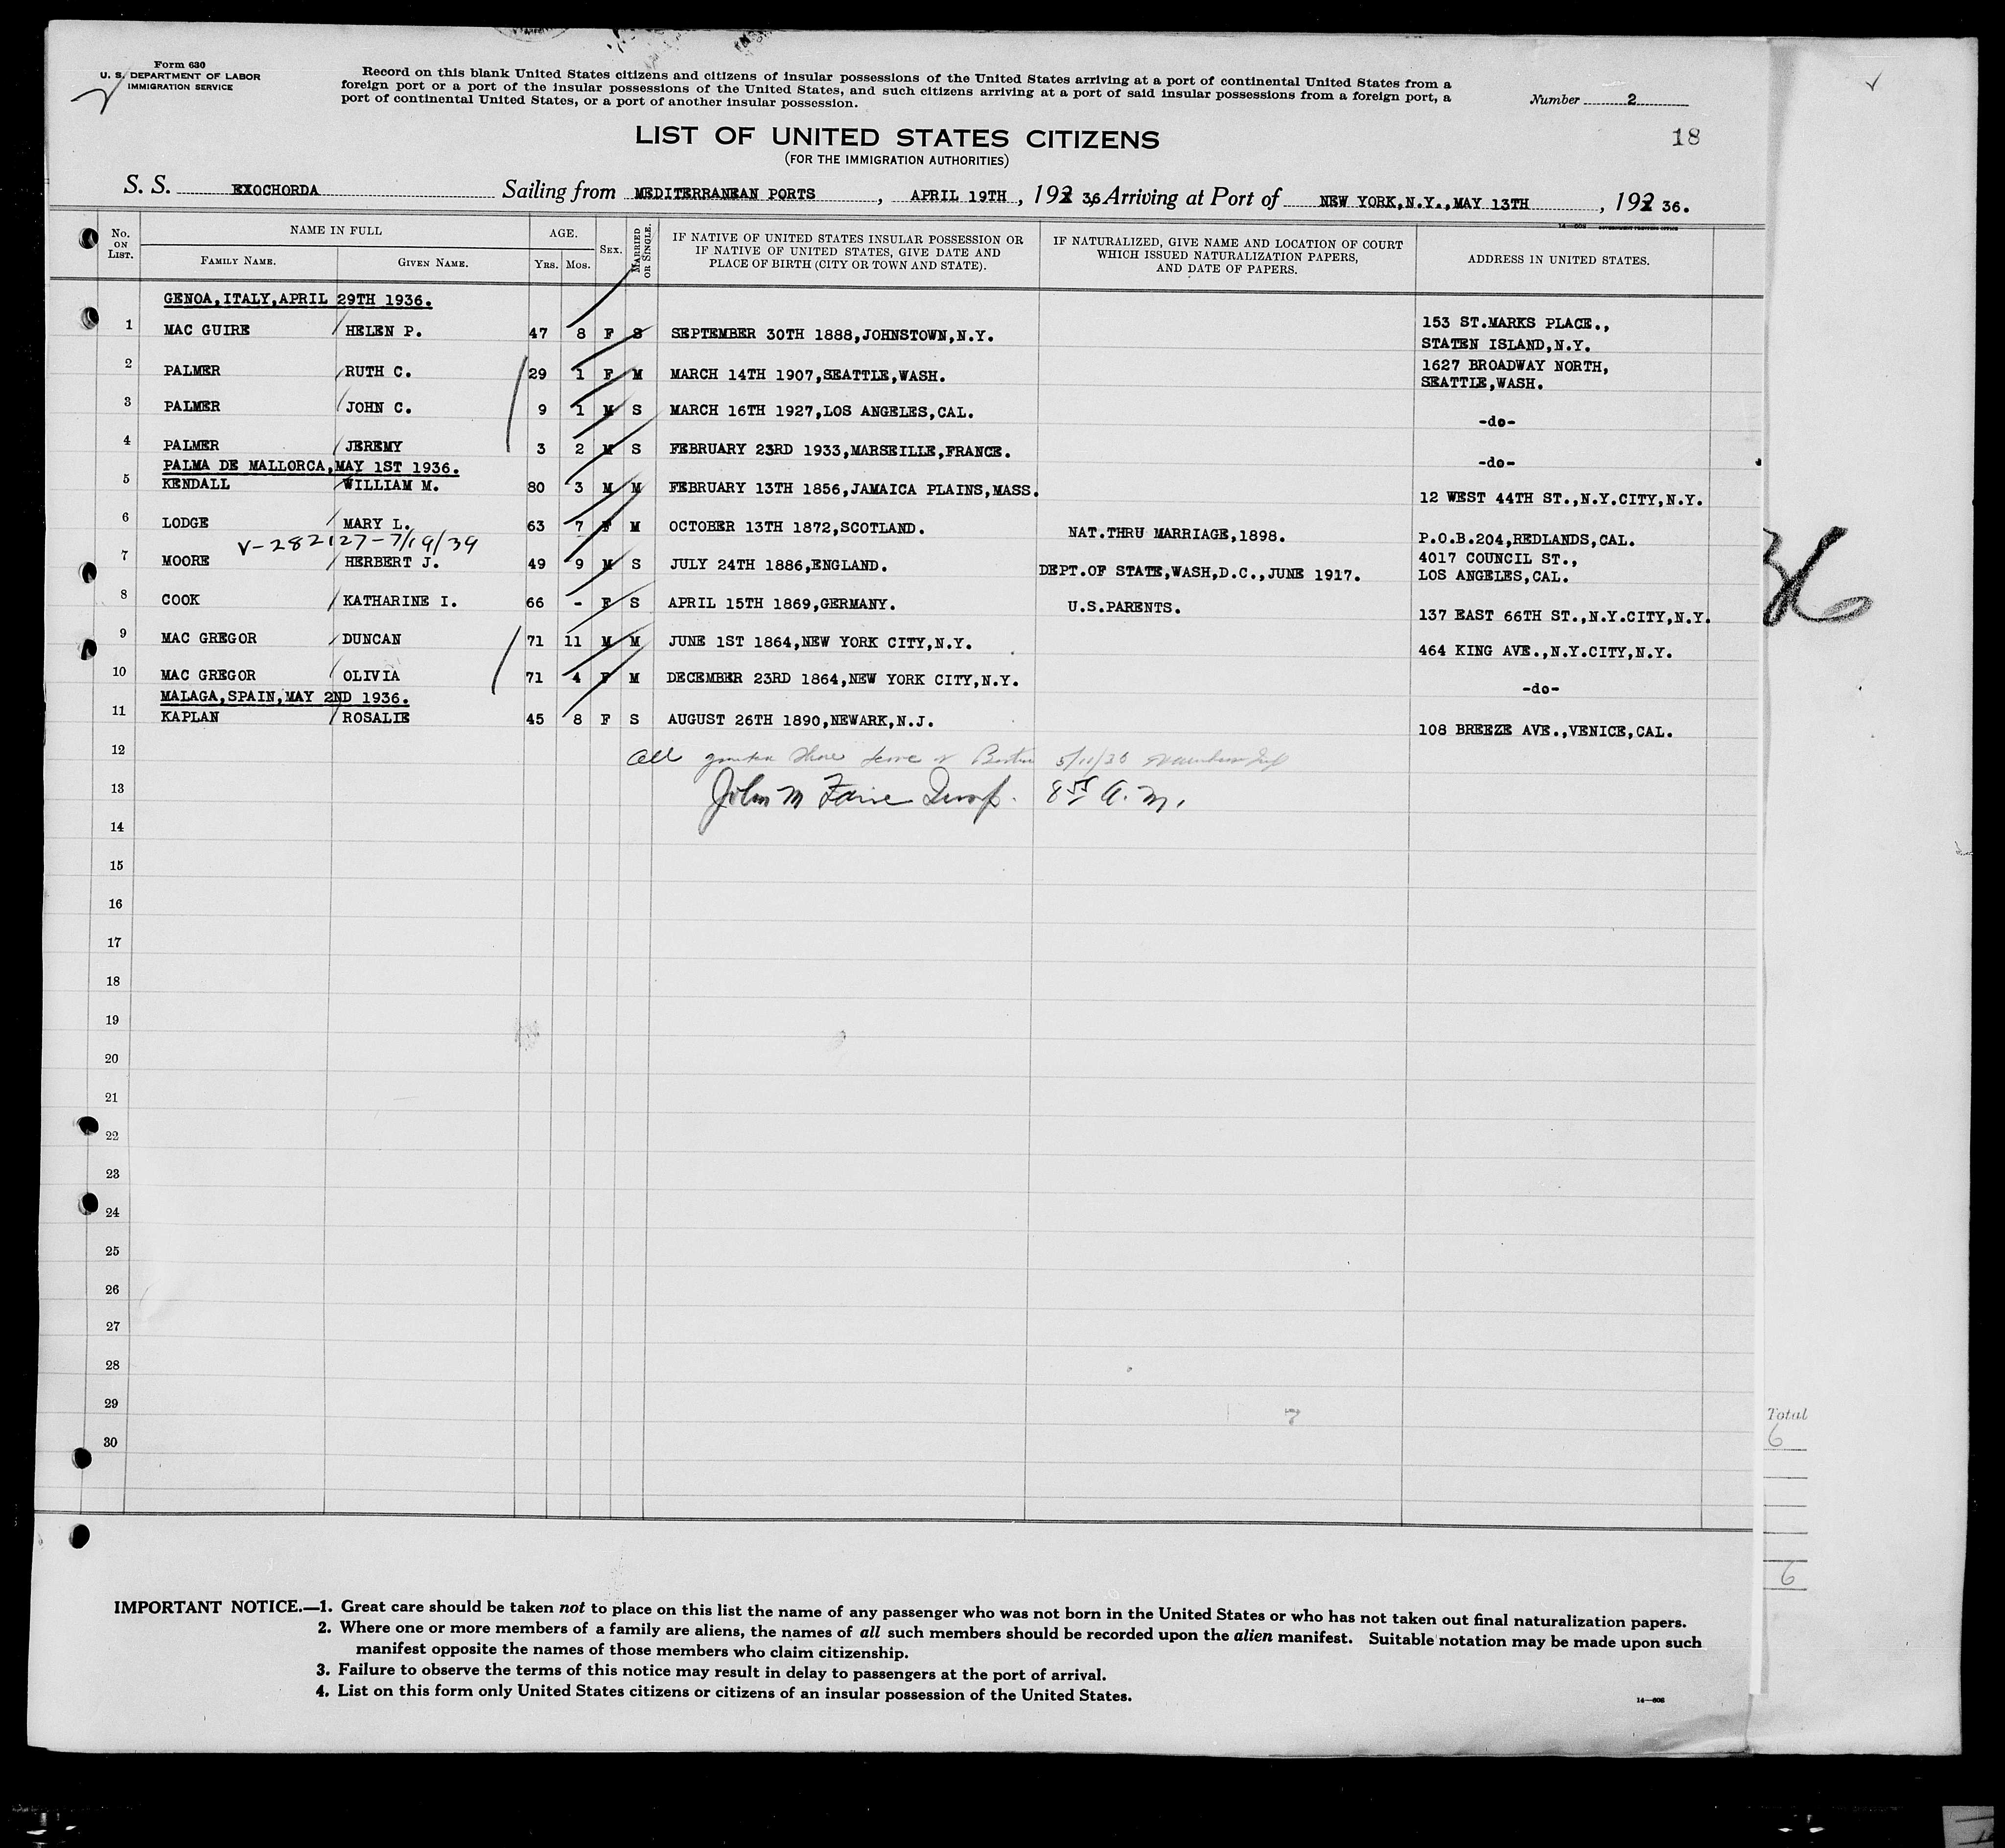 Form 630
U. S. DEPARTMENT OF LABOR
IMMIGRATION SERVICE
Record on this blank United States citizens and citizens of insular possessions of the United States arriving at a port of continental United States from a
foreign port or a port of the insular possessions of the United States, and such citizens arriving at a port of said insular possessions from a foreign port, a
port of continental United States, or a port of another insular possession.
Number 2
18
LIST OF UNITED STATES CITIZENS
(FOR THE IMMIGRATION AUTHORITIES)
S. S. EXOCHORDA Sailing from MEDITERRANEAN PORTS , APRIL 19TH , 192 36, Arriving at Port of NEW YORK,N.Y.,MAY 13TH , 192 36.
No. ON LIST. NAME IN FULL FAMILY NAME. GIVEN NAME. AGE. YRS. MOS. SEX. MARRIED OR SINGLE. IF NATIVE OF UNITED STATES INSULAR POSSESSION OR IF NATIVE OF UNITED STATES, GIVE DATE AND PLACE OF BIRTH (CITY OR TOWN AND STATE). IF NATURALIZED, GIVE NAME AND LOCATION OF COURT WHICH ISSUED NATURALIZATION PAPERS, AND DATE OF PAPERS. ADDRESS IN UNITED STATES.
GENOA,ITALY,APRIL 29TH 1936.
1 MAC GUIRE HELEN P. 47 8 F S SEPTEMBER 30TH 1888,JOHNSTOWN,N.Y. 153 ST.MARKS PLACE.,
STATEN ISLAND,N.Y.
2 PALMER RUTH C. 29 1 F M MARCH 14TH 1907,SEATTLE,WASH. 1627 BROADWAY NORTH,
SEATTLE,WASH.
3 PALMER JOHN C. 9 1 M S MARCH 16TH 1927,LOS ANGELES,CAL. -do-
4 PALMER JEREMY 3 2 M S FEBRUARY 23RD 1933,MARSEILLE,FRANCE. -do-
PALMA DE MALLORCA,MAY 1ST 1936.
5 KENDALL WILLIAM M. 80 3 M M FEBRUARY 13TH 1856,JAMAICA PLAINS,MASS. 12 WEST 44TH ST.,N.Y.CITY,N.Y.
6 LODGE MARY L. 63 7 F M OCTOBER 13TH 1872,SCOTLAND. NAT.THRU MARRIAGE,1898. P.O.B.204,REDLANDS,CAL.
V-282127-7/19/39
7 MOORE HERBERT J. 49 9 M S JULY 24TH 1886,ENGLAND. DEPT.OF STATE,WASH,D.C.,JUNE 1917. 4017 COUNCIL ST.,
LOS ANGELES,CAL.
8 COOK KATHARINE I. 66 - F S APRIL 15TH 1869,GERMANY. U.S.PARENTS. 137 EAST 66TH ST.,N.Y.CITY,N.Y.
9 MAC GREGOR DUNCAN 71 11 M M JUNE 1ST 1864,NEW YORK CITY,N.Y. 464 KING AVE.,N.Y.CITY,N.Y.
10 MAC GREGOR OLIVIA 71 4 F M DECEMBER 23RD 1864,NEW YORK CITY,N.Y. -do-
MALAGA,SPAIN,MAY 2ND 1936.
11 KAPLAN ROSALIE 45 8 F S AUGUST 26TH 1890,NEWARK,N.J. 108 BREEZE AVE.,VENICE,CAL.
12 All shore leave Boston 5/11/36
13 John M 8 55 A.M.
14
15
16
17
18
19
20
21
22
23
24
25
26
27
28
29
30
36
7
Total
6
6
IMPORTANT NOTICE.—1. Great care should be taken not to place on this list the name of any passenger who was not born in the United States or who has not taken out final naturalization papers.
2. Where one or more members of a family are aliens, the names of all such members should be recorded upon the alien manifest. Suitable notation may be made upon such
manifest opposite the names of those members who claim citizenship.
3. Failure to observe the terms of this notice may result in delay to passengers at the port of arrival.
4. List on this form only United States citizens or citizens of an insular possession of the United States.
14—608